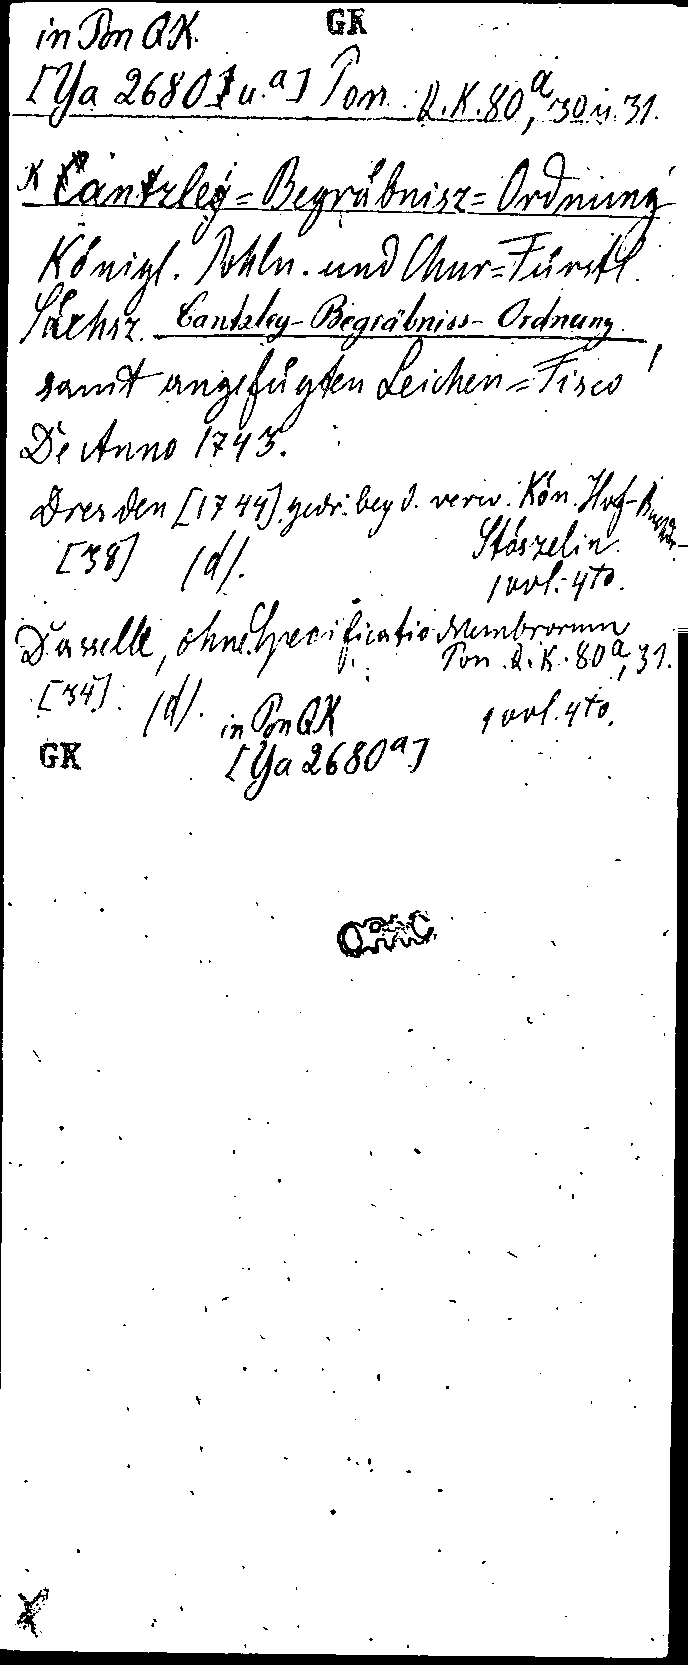 in Pon QK. GK
[Ya 2680 u. a] Pon. Q.K. 80a, 30 u. 31.
K Cantzley=Begräbnisz=Ordnung
Königl. Pohln. und Chur=Fürstl.
Sächsz. Cantzley-Begräbniss-Ordnung,
samt angefügten Leichen=Fisco
De Anno 1743.
Dresden [1744] gedr. bey d. verw. Kön. Hof-
Stöszelin.
[38] (d). 1 vol. 4to.
Dasselbe, ohne Specificatio Membrorum
Pon. Q.K. 80a, 31.
[34] (d). in Pon QK 1 vol. 4to.
GK [Ya 2680a]